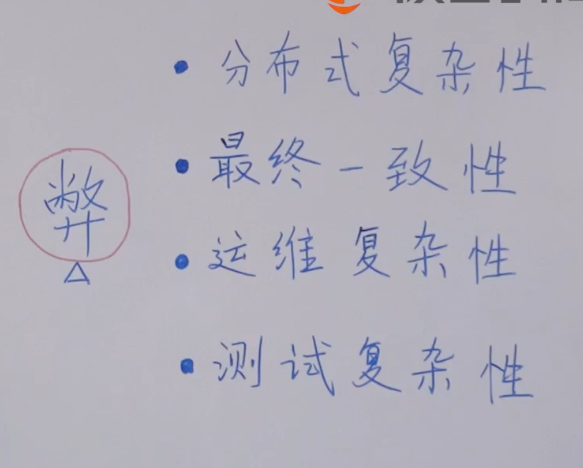 分布式复杂性
最终一致性
弊
运维复杂性
测试复杂性